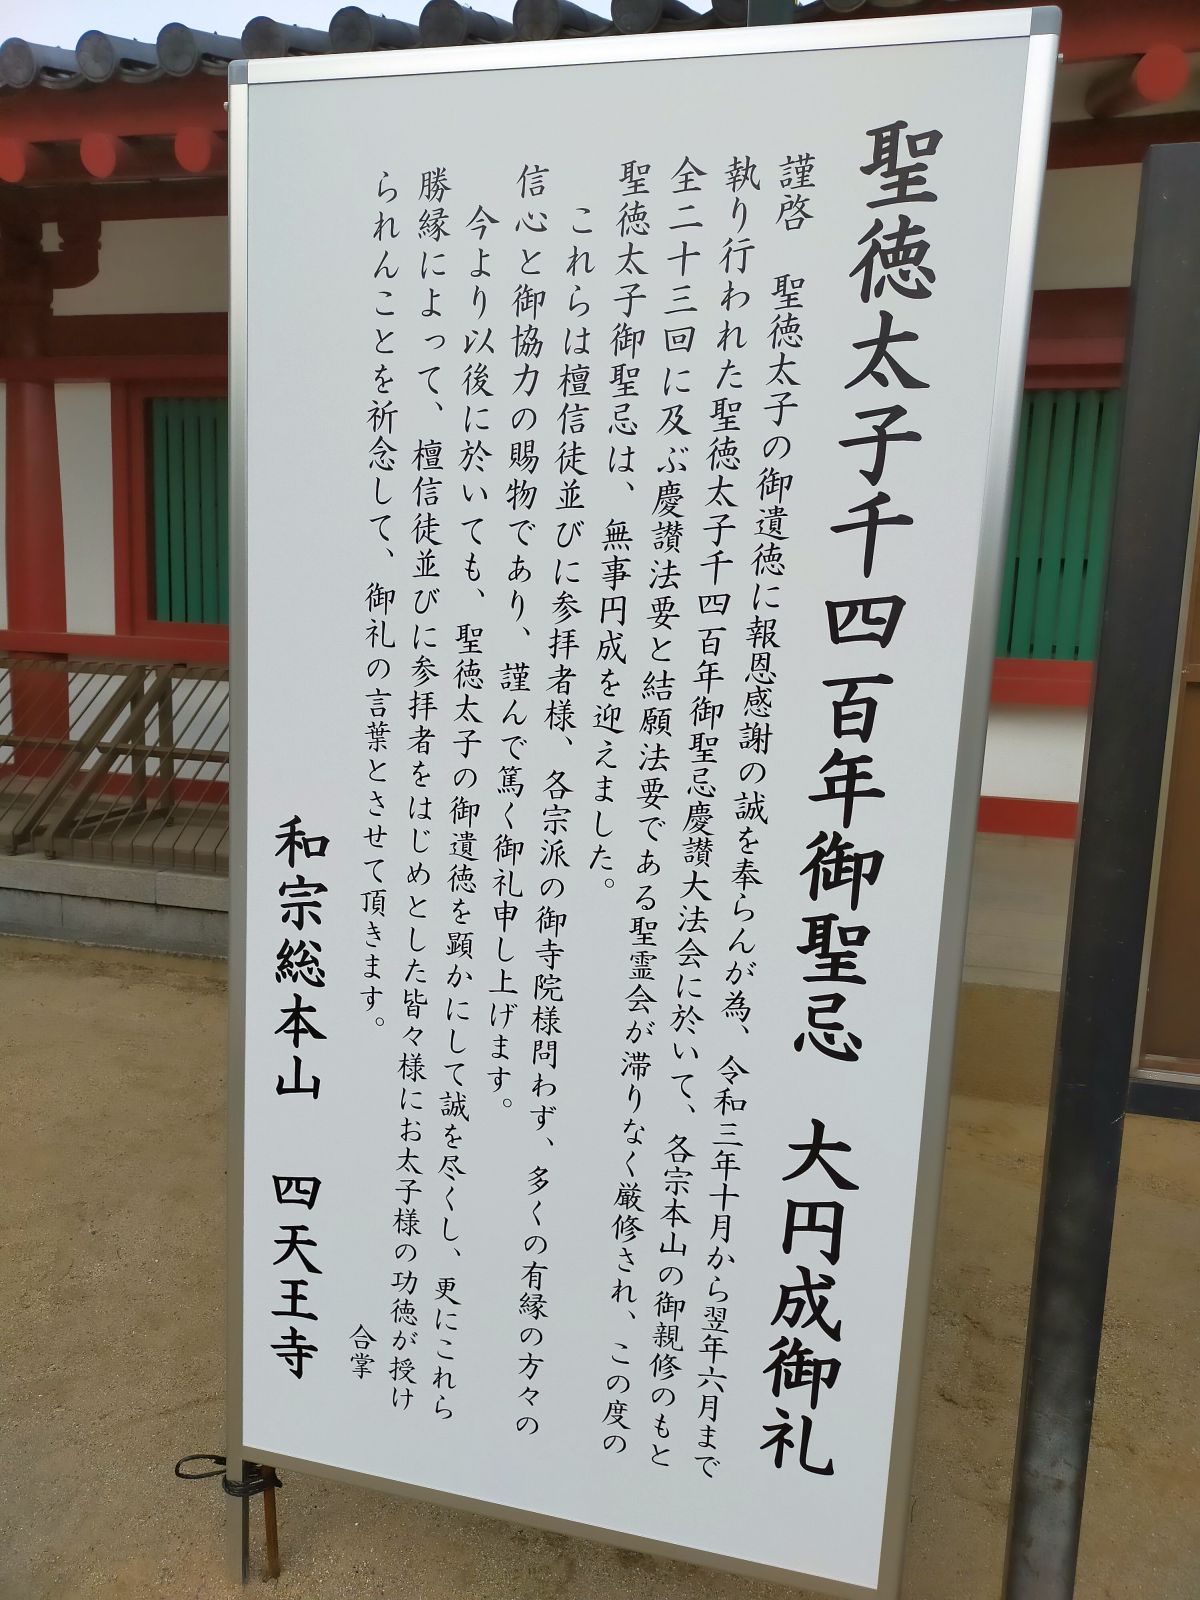 聖徳太子千四百年御聖忌　大円成御礼
謹啓　聖徳太子の御遺徳に報恩感謝の誠を奉らんが為、令和三年十月から翌年六月まで
執り行われた聖徳太子千四百年御聖忌慶讃大法会に於いて、各宗本山の御親修のもと
全二十三回に及ぶ慶讃法要と結願法要である聖霊会が滞りなく厳修され、この度の
聖徳太子御聖忌は、無事円成を迎えました。
これらは檀信徒並びに参拝者様、各宗派の御寺院様問わず、多くの有縁の方々の
信心と御協力の賜物であり、謹んで篤く御礼申し上げます。
今より以後に於いても、聖徳太子の御遺徳を顕かにして誠を尽くし、更にこれら
勝縁によって、檀信徒並びに参拝者をはじめとした皆々様にお太子様の功徳が授け
られんことを祈念して、御礼の言葉とさせて頂きます。
合掌
和宗総本山　四天王寺